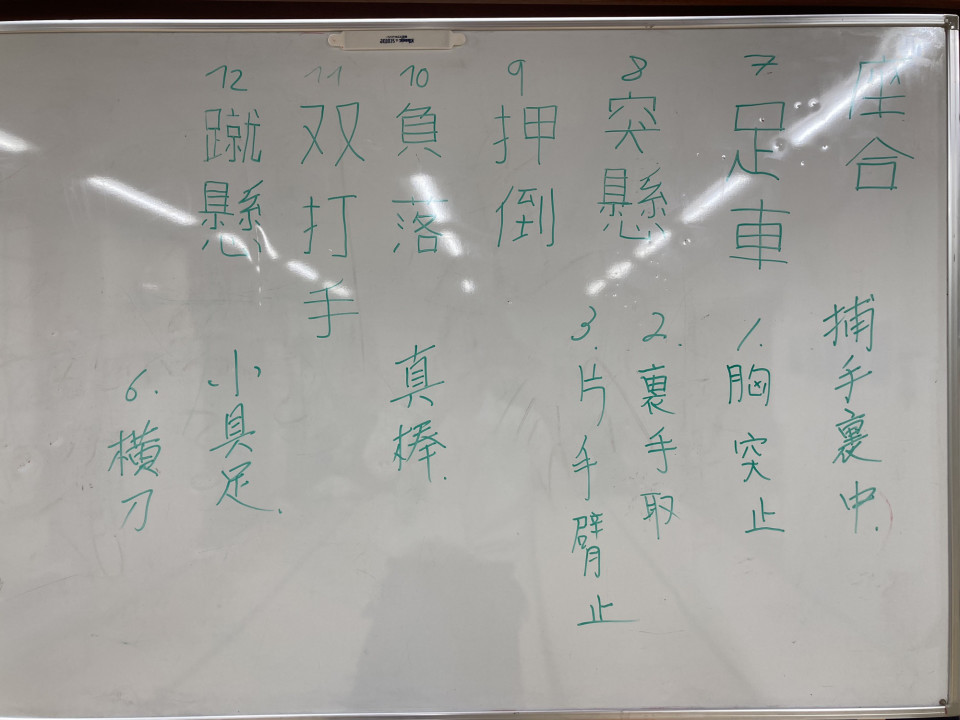 座合
7 足車
8 突懸
9 押倒
10 負落
11 双打手
12 蹴懸
捕手裏中.
1. 胸突止
2. 裏手取
3. 片手臂止
真棒.
小具足.
6. 横刀